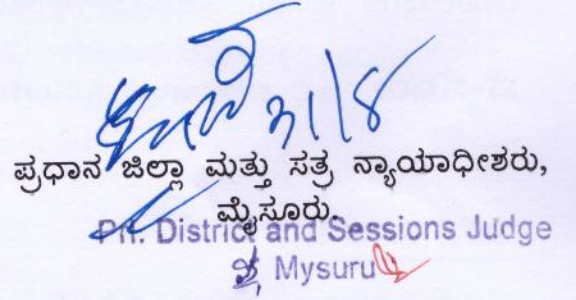 31/8
ಪ್ರಧಾನ ಜಿಲ್ಲಾ ಮತ್ತು ಸತ್ರ ನ್ಯಾಯಾಧೀಶರು,
ಮೈಸೂರು.
Prl. District and Sessions Judge
Mysuru